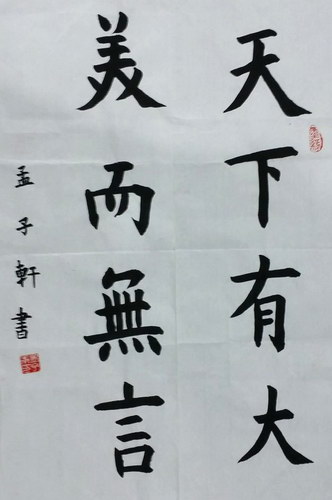 天下有大
美而無言
孟子軒書